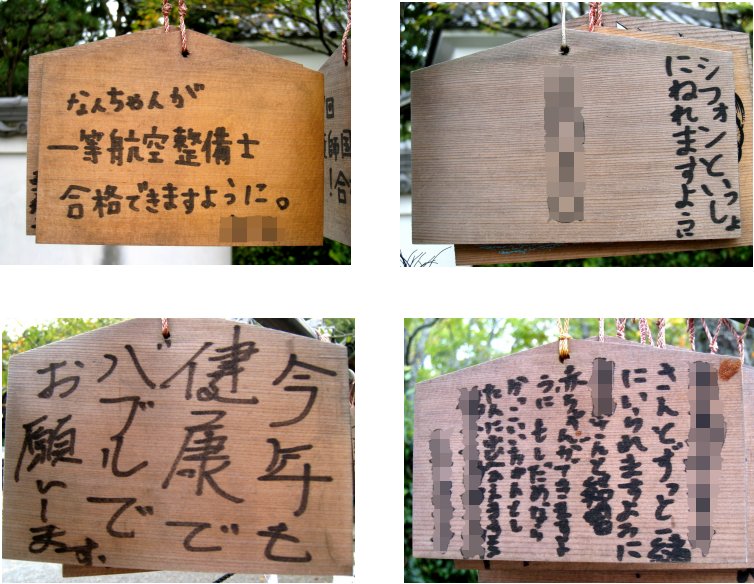 なんちゃんが
一等航空整備士
合格できますように。
師国
！合
シフォンといっしょ
にねれますように
今年も
健康で
バブルで
お願いします。
さんとずっと一緒
にいられますように
さんと結婚
赤ちゃんができますよ
うに もしだめなら
かっこいい